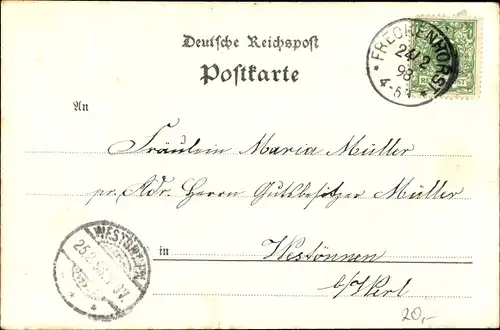 Deutsche Reichspost
Postkarte
FRECKENHORST
24/2
98
4-5N
An
Fräulein Maria Müller
pr. Adr. Herrn Gutsbesitzer Müller
in Westönnen
b/Werl
WESTÖNNEN
25/2
20,-